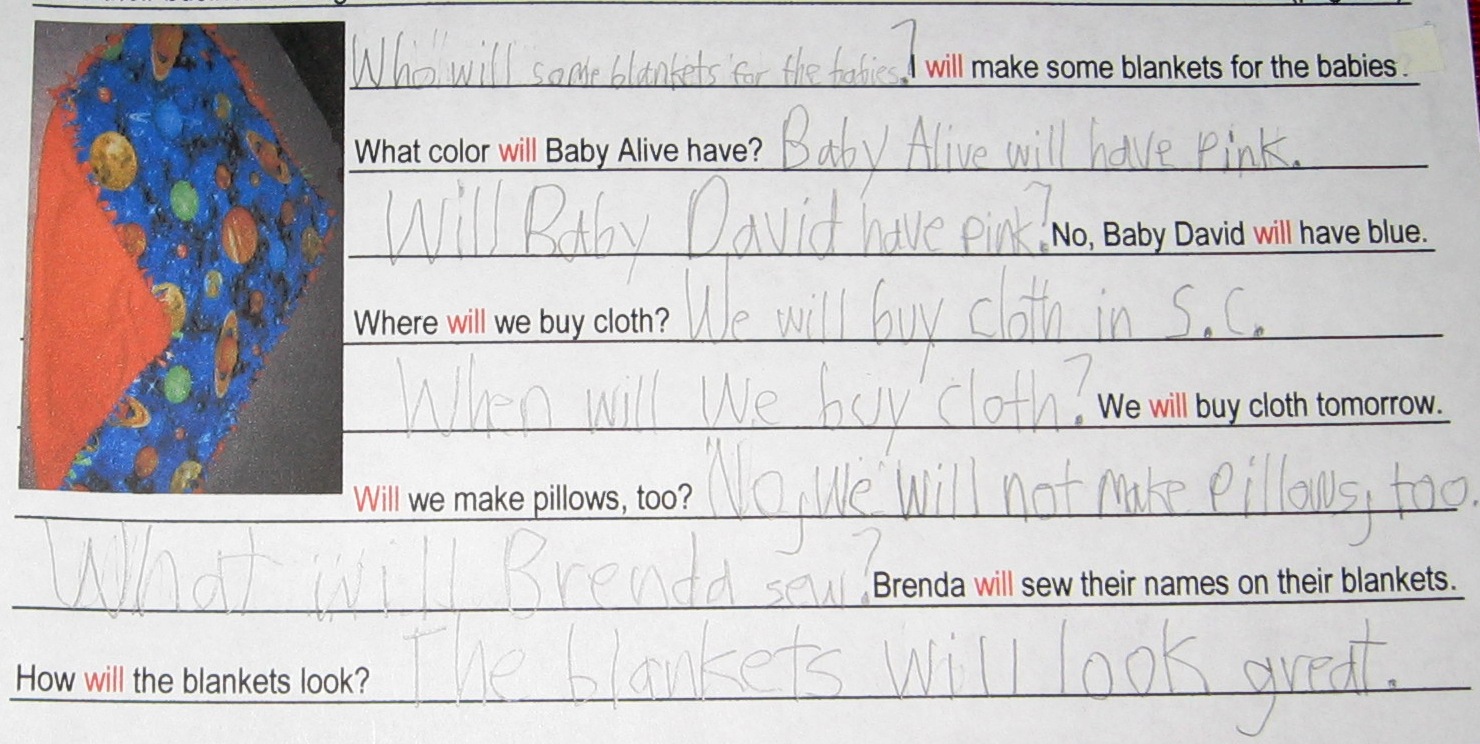 Who will some blankets for the babies? I will make some blankets for the babies.
What color will Baby Alive have? Baby Alive will have pink.
Will Baby David have pink? No, Baby David will have blue.
Where will we buy cloth? We will buy cloth in S.C.
When will We buy cloth? We will buy cloth tomorrow.
Will we make pillows, too? No, We will not make pillows, too.
What will Brenda sew? Brenda will sew their names on their blankets.
How will the blankets look? The blankets will look great.